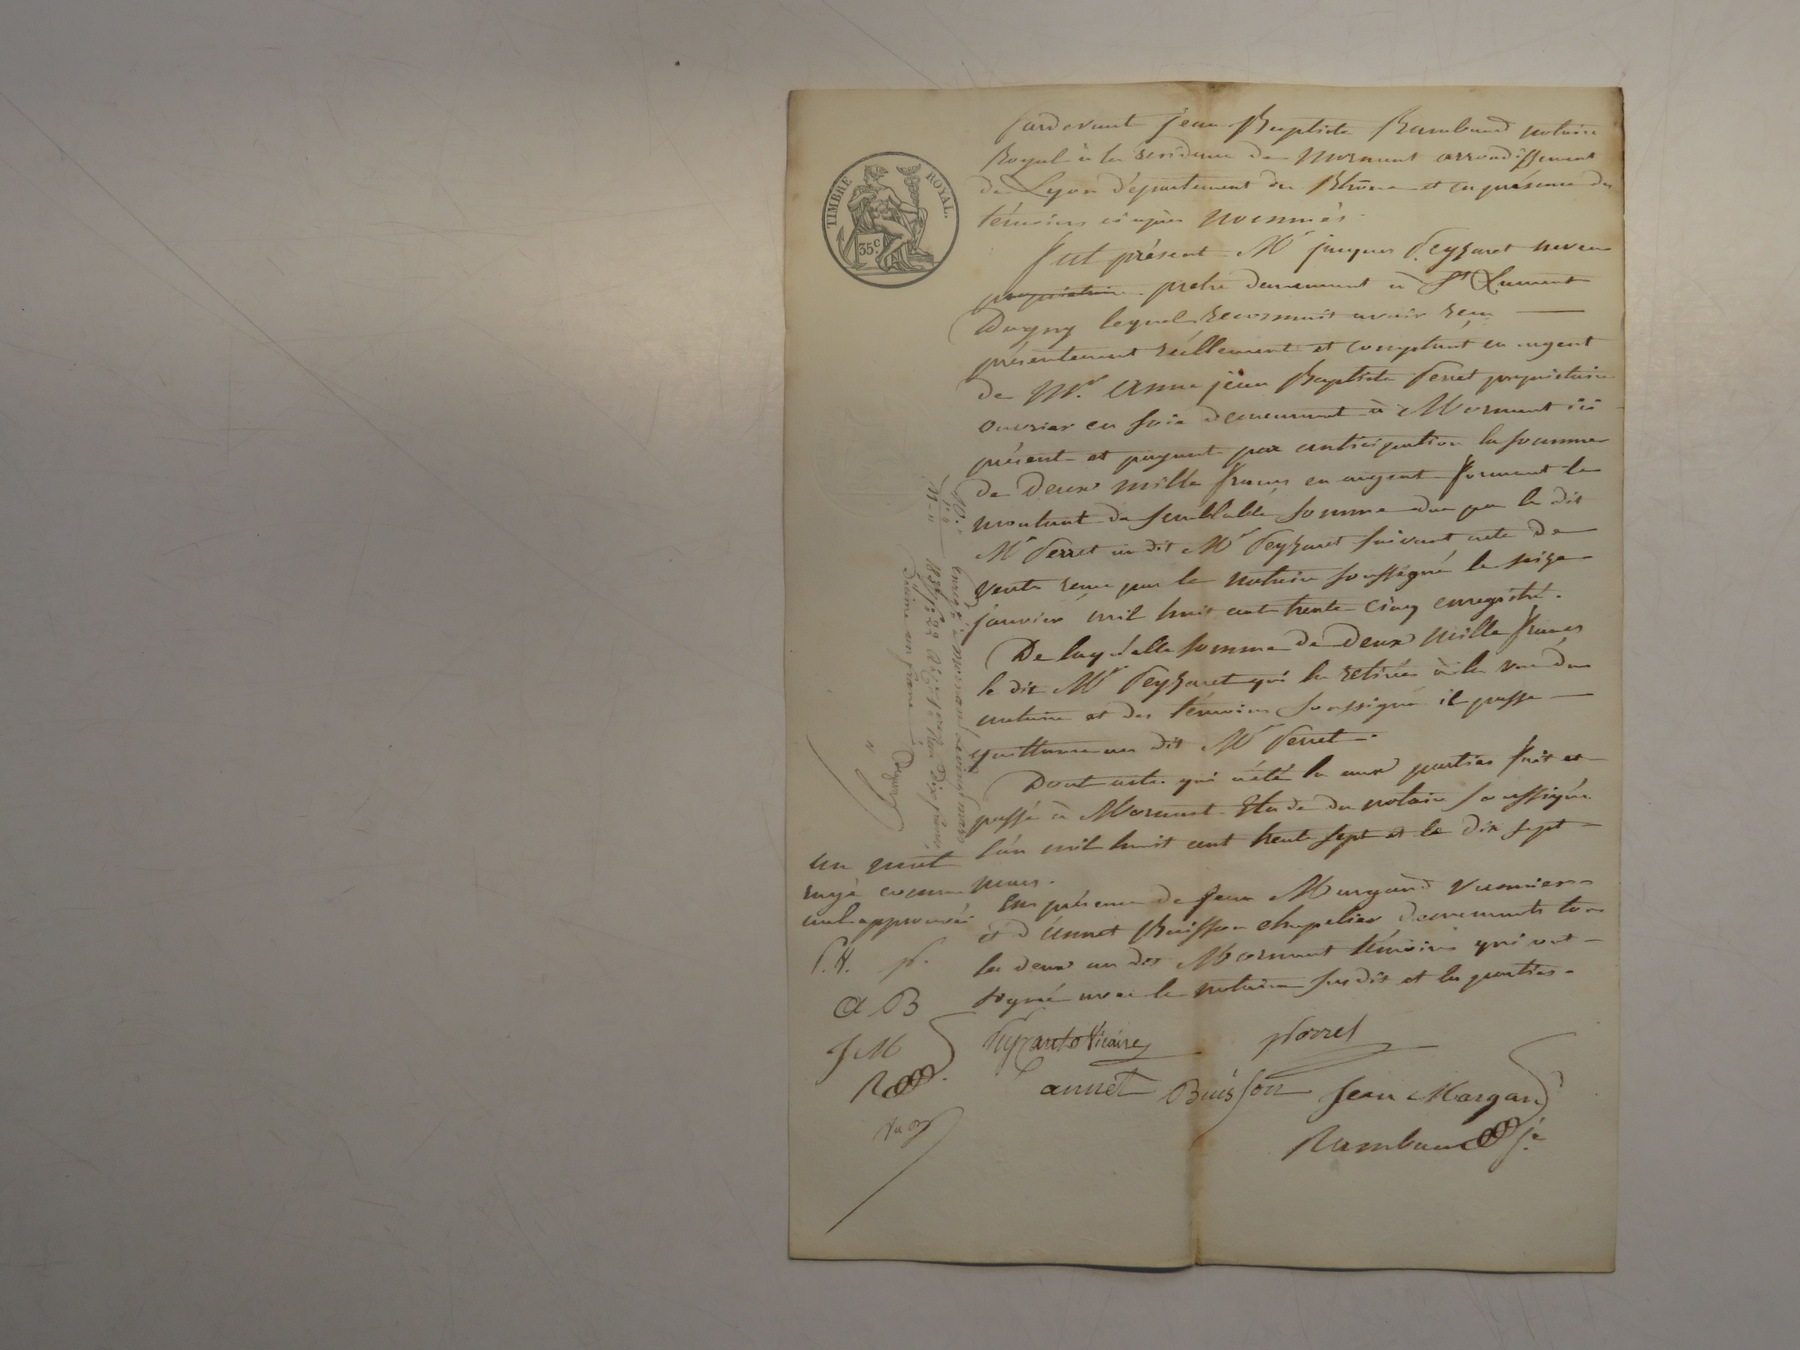 TIMBRE ROYAL.
35c
Pardevant jean Baptiste Rambaud notaire
Royal à la residence de Mornant arrondissement
de Lyon département du Rhône et en présence des
témoins ci après nommés.
fut présent Mr jacques Peyzaret
propriétaire pretre demeurant à St Laurent
Dagny lequel reconnait avoir reçu
présentement réellement et comptant en argent
de Mr. anne jean Baptiste Perret propriétaire
ouvrier en soie demeurant à Mornant ici
présent et payant par anticipation la somme
de deux mille francs en argent formant le
montant de semblable somme due par le dit
Mr Perret au dit Mr Peyzaret suivant acte de
vente reçu par le notaire soussigné le seize
janvier mil huit cent trente cinq enregistré.
De laquelle somme de deux mille francs
le dit Mr Peyzaret qui la retirée à la vue du
notaire et des témoins soussigné il passe
quittance au dit Mr Perret.
Dont acte qui a été lu aux parties fait et
passé à Mornant Etude du notaire soussigné
l'an mil huit cent trente sept et le dix sept
mars.
En présence de jean Margand
et d'annet Buisson chapelier demeurants tous
les deux au dit Mornant témoins qui ont
signé avec le notaire susdit et les parties.
un mot
rayé comme
nul approuvé
P.V. p.
a B
J M
R
Vicaire
perret
annet Buisson
Jean Margand
Rambaud